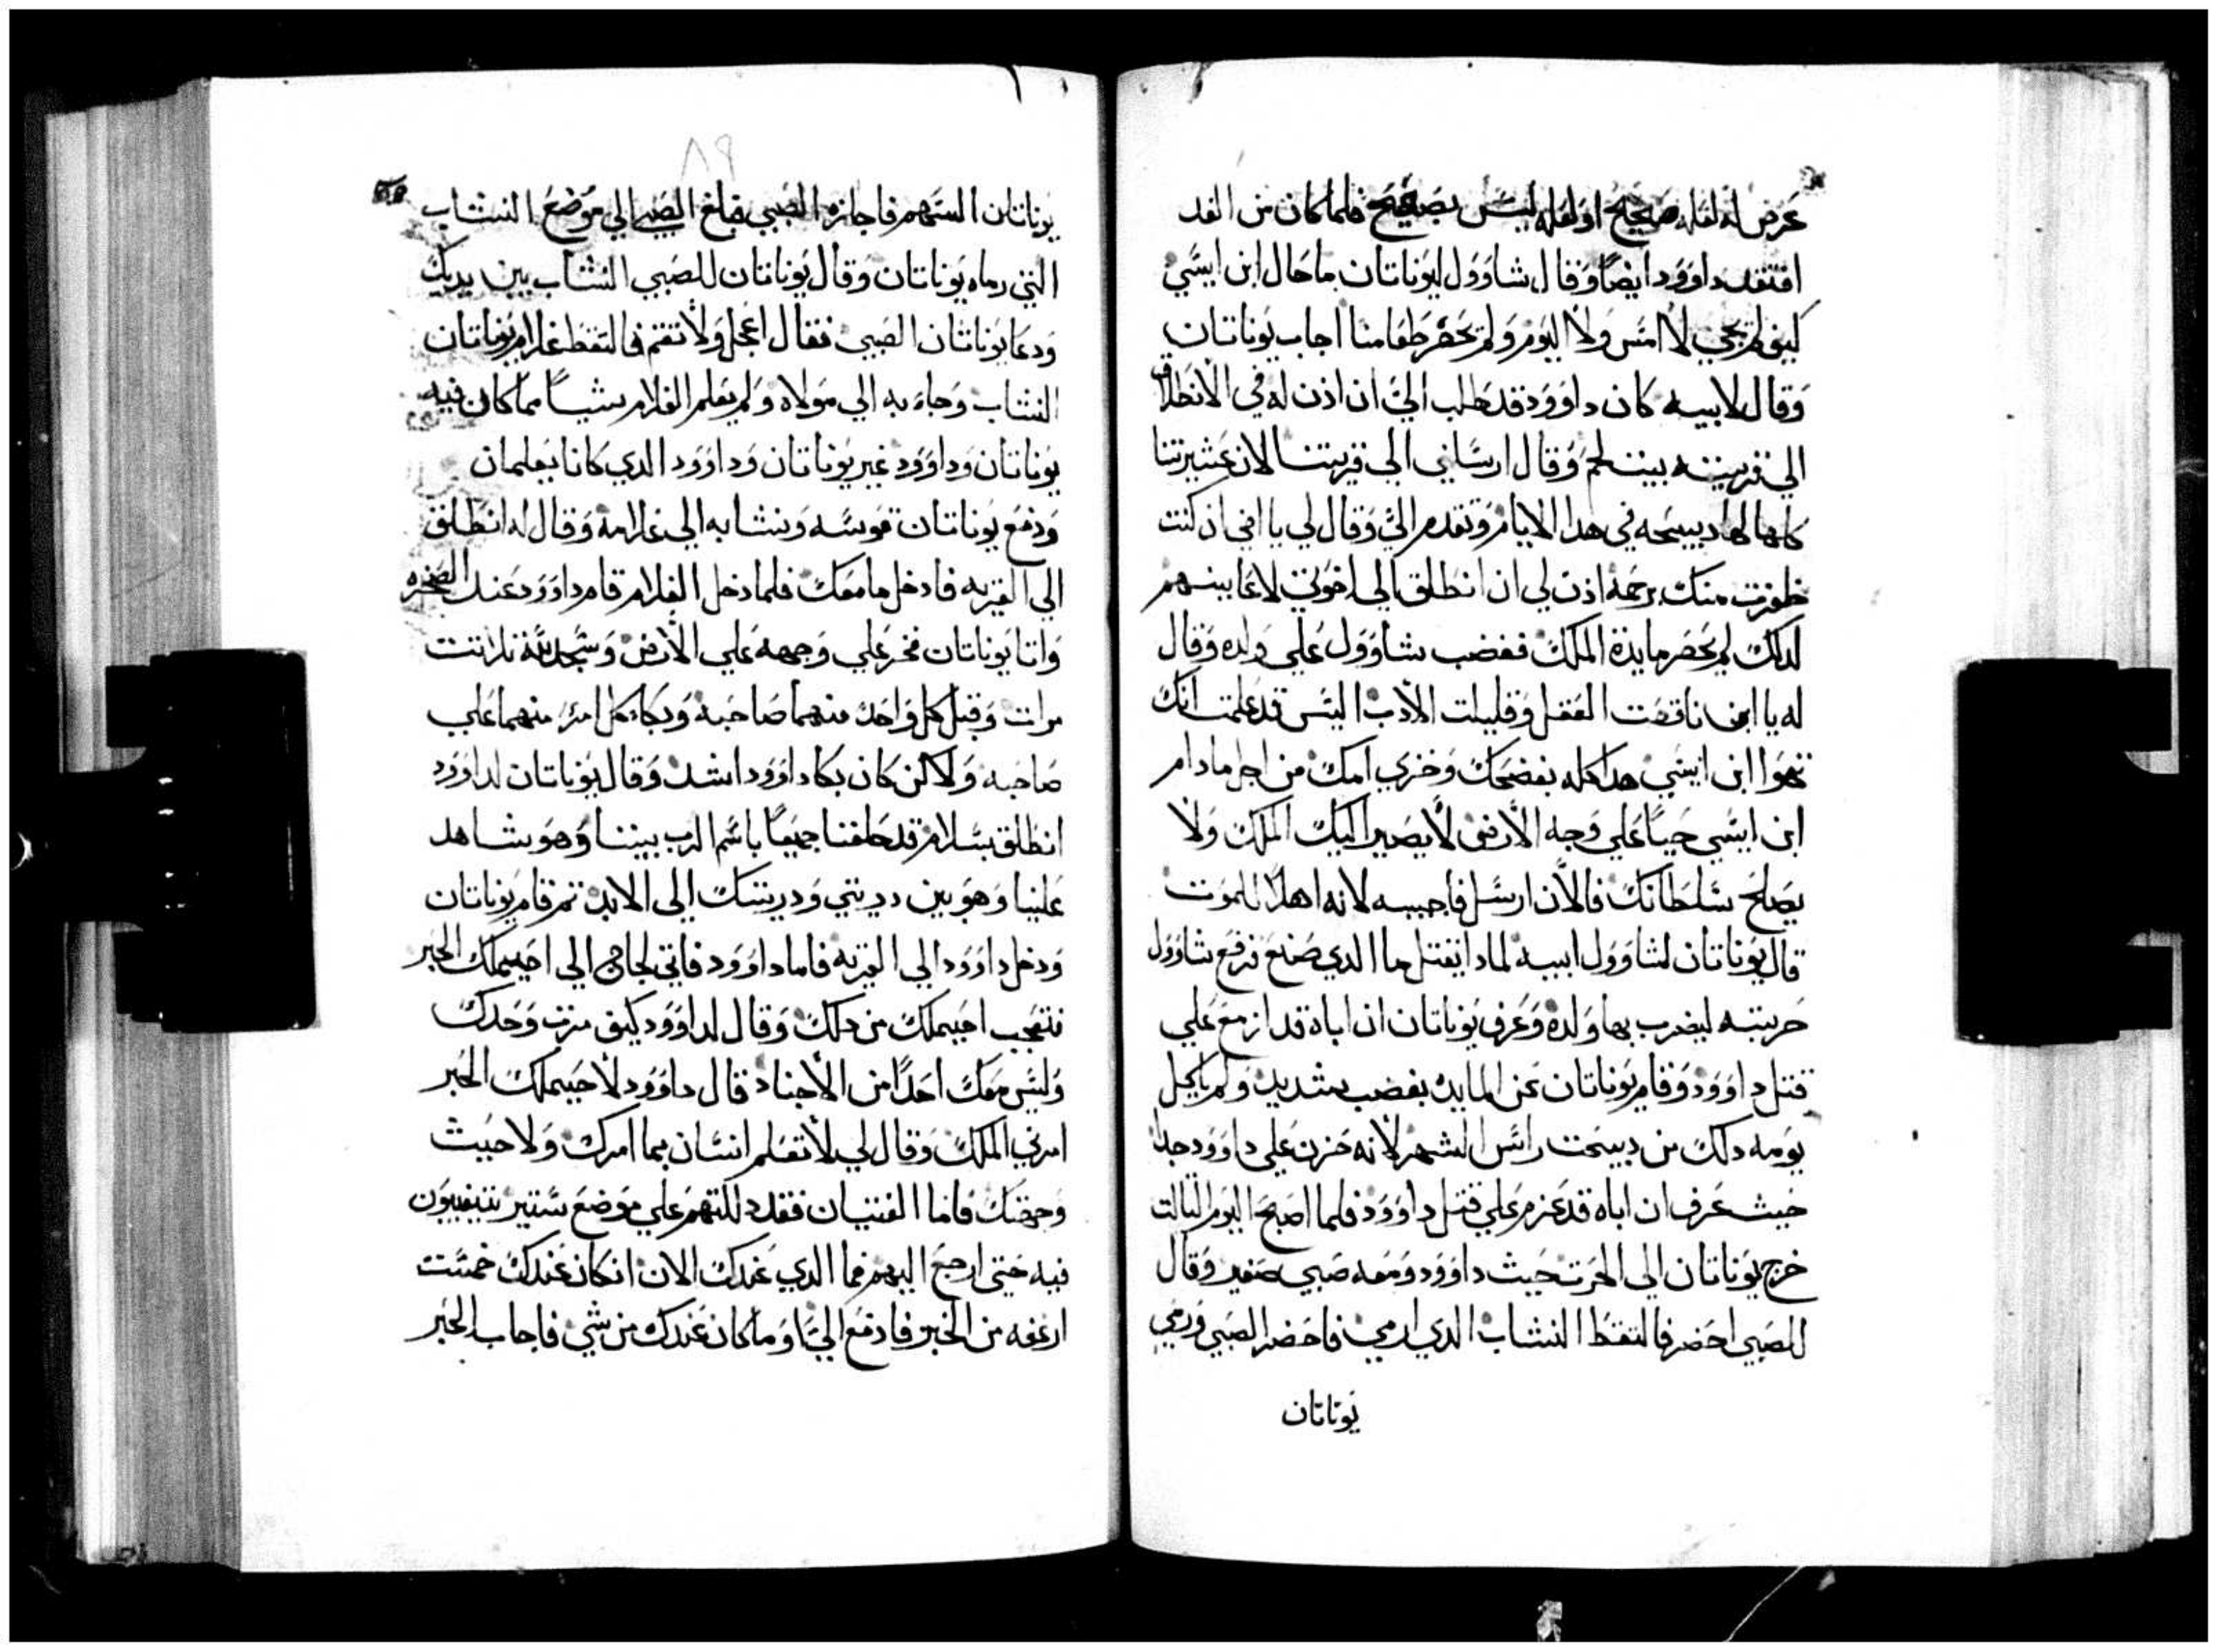 عرض له لعله صحيح او لعله ليس بصحيح فلما كان من الغد
افتقد داوود ايضًا وقال شاوول ليوناتان ما حال ابن ايسي
كيف لم يجي لا امس ولا اليوم ولم يحضر طعامنا اجاب يوناتان
وقال لابيه كان داوود قد طلب اليَّ ان اذن له في الانطلاق
الي قريته بيت لحم وقال ارسلني الي قريتنا لان عشيرتنا
كلها لها دبيحه في هدا الايام وتقدم اليَّ وقال لي يا اخي ان كنت
ظفرت منك برحمة اذن لي ان انطلق الي اخوتي لاعاينهم
لدلك لم يحضر مايدة الملك فغضب شاوول علي ولده وقال
له يا ابن ناقصت العقل وقليلت الأدب اليس قد علمت انك
تهوا ابن ايسي هدا كله بفضحك وخزي امك من اجل ما دام
ابن ايسي حيًا علي وجه الأرض لا يصير اليك الملك ولا
يصلح سلطانك فالآن ارسل فاجيبه لانه اهلاً للموت
قال يوناتان لشاوول ابيه لمادا يقتل ما الدي صنع فرفع شاوول
حربته ليضرب بها ولده وعرف يوناتان ان اباه قد ازمع علي
قتل داوود وقام يوناتان عن المايده بغضب شديد ولم ياكل
يومه دلك من دبيحت راس الشهر لأنه حزن علي داوود جدا
حيث عرف ان اباه قد عزم علي قتل داوود فلما اصبح اليوم التالت
خرج يوناتان الي الحرت حيث داوود ومعه صبي صغير وقال
للصبي احضر فالتقط النشاب الدي ارمي فاحضر الصبي ورمي
يوناتان
يوناتان السهم فاجازه الصبي فبلغ الصبي الي موضع النشاب
التي رماه يوناتان وقال يوناتان للصبي النشاب بين يديك
ودعا يوناتان الصبي فقال اعجل ولا تقم فالتقط غلام يوناتان
النشاب وجاء به الي مولاه ولم يعلم الغلام بشيًا مما كان فيه
يوناتان وداوود غير يوناتان وداوود الدي كانا يعلمان
ودفع يوناتان قوسه ونشابه الي غلامه وقال له انطلق
الي القريه فادخل ما معك فلما دخل الغلام قام داوود عند الصخره
واتا يوناتان فخر علي وجهه علي الأرض وسجد له تلاتت
مرات وقبل كل واحد منهما صاحبه وبكاء كل امرء منهما علي
صاحبه ولاكن كان بكا داوود اشد وقال يوناتان لداوود
انطلق بسلام قد حلفنا جميعًا باسم الرب بيننا وهو شاهد
علينا وهو بين دريتي ودريتك الي الابد تم قام يوناتان
ودخل داوود الي القريه فاما داوود فاتي لجاج الي احيملك الحبر
فتعجب احيملك من دلك وقال لداوود كيف مرت وحدك
وليس معك احدًا من الأجناد قال داوود لأحيملك الحبر
امرني الملك وقال لي لا تعلم انسان بما امرك ولا حيث
وجهتك فاما الفتيان فقد دللتهم علي موضع ستير يتغيبون
فيه حتي ارجع اليهم فما الدي عندك الان ان كان عندك خمست
ارغفه من الخبز فادفع اليَّ او ما كان عندك من شي فاجاب الحبر